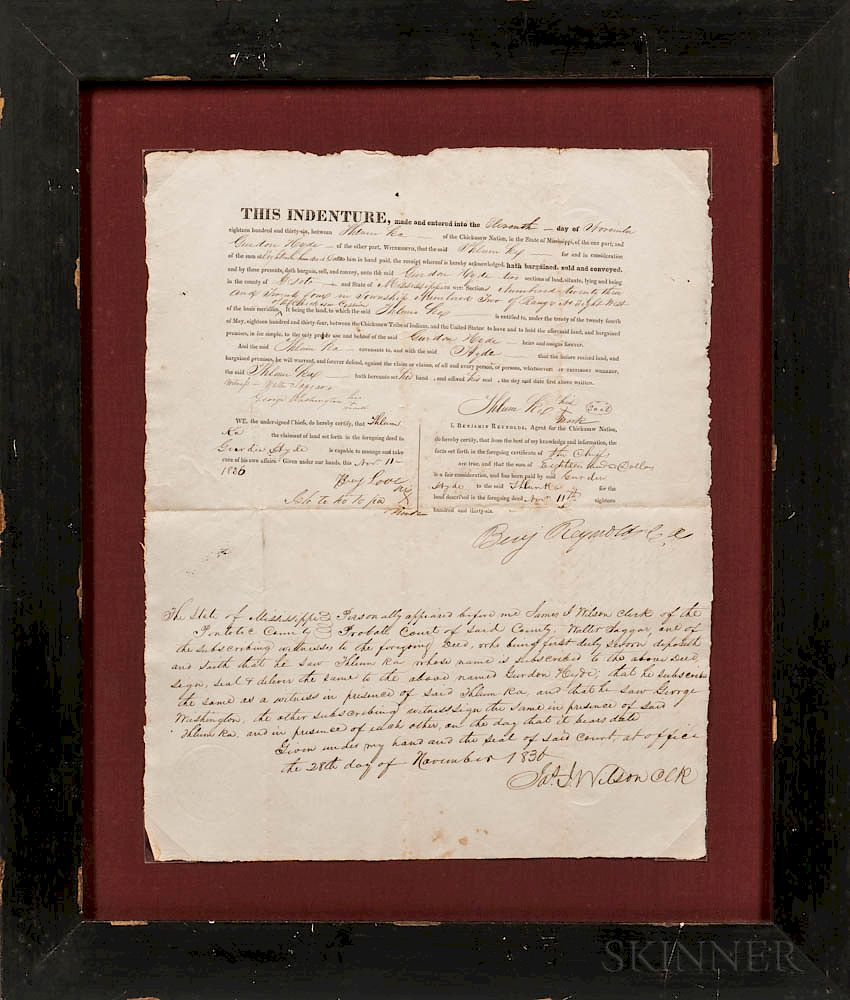 THIS INDENTURE, made and entered into the Eleventh — day of November
eighteen hundred and thirty-six, between Thlum Ka — of the Chickasaw Nation, in the State of Mississippi, of the one part, and
Gurdon Hyde — of the other part, WITNESSETH, that the said Thlum Ka — for and in consideration
of the sum of Eighteen hundred Dollars him in hand paid, the receipt whereof is hereby acknowledged, hath bargained, sold and conveyed,
and by these presents, doth bargain, sell, and convey, unto the said Gurdon Hyde two sections of land, situate, lying and being
in the county of Desoto — and State of Mississippi Sections Numbered twenty three
and Twenty four in Township Numbered Two of Range No Eight West
of the Chickasaw Cession
of the basis meridian. It being the land, to which the said Thlum Ka — is entitled to, under the treaty of the twenty fourth
of May, eighteen hundred and thirty-four, between the Chickasaw Tribe of Indians, and the United States: to have and to hold the aforesaid land, and bargained
premises, in fee simple, to the only proper use and behoof of the said Gurdon Hyde — heirs and assigns forever.
And the said Thlum Ka — covenants to, and with the said Hyde — that the before recited land, and
bargained premises, he will warrant, and forever defend, against the claim or claims, of all and every person, or persons, whatsoever: IN TESTIMONY WHEREOF,
the said Thlum Ka — hath hereunto set his hand , and affixed his seal , the day and date first above written.
Witness — Walter Taggart
George Washington his
+
mark
Thlum Ka his
+
mark
Seal
WE, the undersigned Chiefs, do hereby certify, that Thlum
Ka the claimant of land set forth in the foregoing deed to
Gurdon Hyde is capable to manage and take
care of his own affairs. Given under our hands, this Nov 11
1836
Benj Love
his
Mark
I, BENJAMIN REYNOLDS, Agent for the Chickasaw Nation,
do hereby certify, that from the best of my knowledge and information, the
facts set forth in the foregoing certificate of the Chiefs
are true, and that the sum of Eighteen hund Dollars
is a fair consideration, and has been paid by said Gurdon
Hyde to the said Thlum Ka for the
land described in the foregoing deed Nov 11th eighteen
hundred and thirty-six.
Benj Reynolds C A
The State of Mississippi } Personally appeared before me James J Wilson Clerk of the
Pontotoc County } Probate Court of said County, Walter Taggar, one of
the subscribing witnesses to the foregoing Deed, who being first duly sworn deposeth
and saith that he saw Thlum Ka whose name is subscribed to the above deed,
sign, seal & deliver the same to the above named Gurdon Hyde; that he subscribed
the same as a witness in presence of said Thlum Ka, and that he saw George
Washington, the other subscribing witness sign the same in presence of said
Thlum Ka, and in presence of each other, on the day that it bears date
Given under my hand and the seal of said Court, at office
the 28th day of November 1836
Jas. J. Wilson Clk
SKINNER